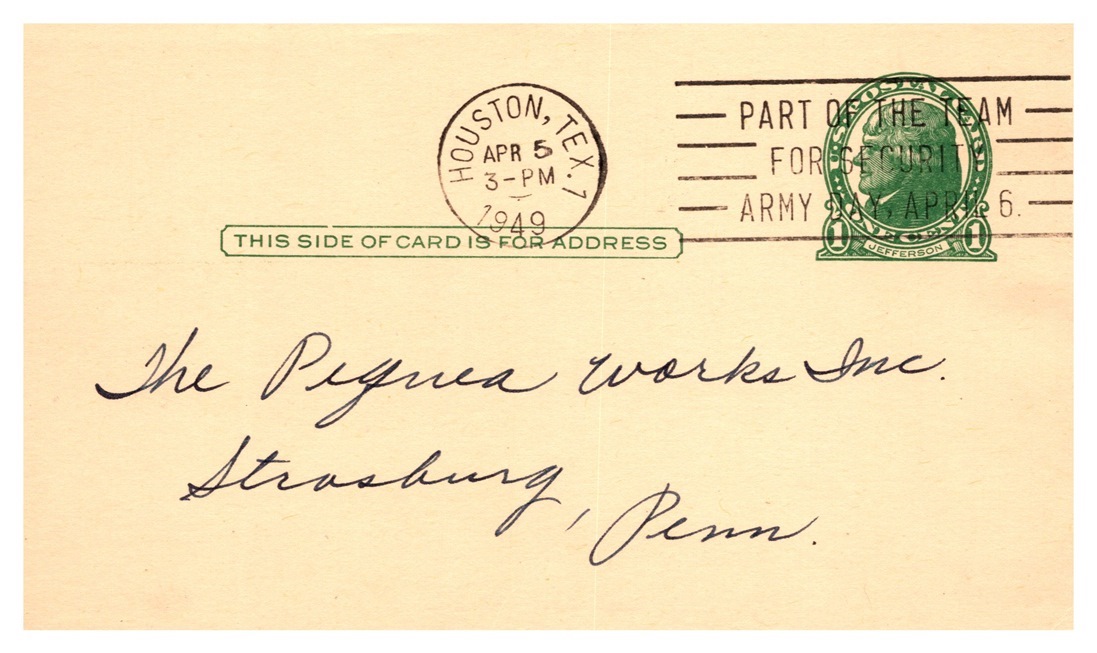 HOUSTON, TEX. 1
APR 5
3-PM
1949
PART OF THE TEAM
FOR SECURITY
ARMY DAY, APRIL 6.
U.S. POSTAL CARD
ONE CENT
1 JEFFERSON 1
THIS SIDE OF CARD IS FOR ADDRESS
The Pequea Works Inc.
Strasburg, Penn.